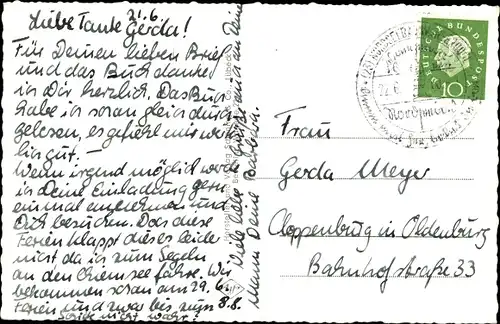 21.6
Liebe Tante Gerda!
Für Deinen lieben Brief
und das Buch danke
ich Dir herzlich. Das Buch
habe ich sogar gleich durch-
gelesen, es gefällt mir wirk-
lich gut. –
Wenn irgend möglich würde
ich Deine Einladung gern
einmal annehmen und
Dich besuchen. Das diese
Ferien klappt dieses leider
nicht da ich zum Segeln
an den Chiemsee fahre. Wir
bekommen schon am 29.6.
Ferien und zwar bis zum 8.8.
Viele liebe Grüße auch an Deine
Mann Deine Barbara.
Frau
Gerda Meyer
Cloppenburg in Oldenburg
Bahnhofstraße 33
DEUTSCHE BUNDESPOST
10